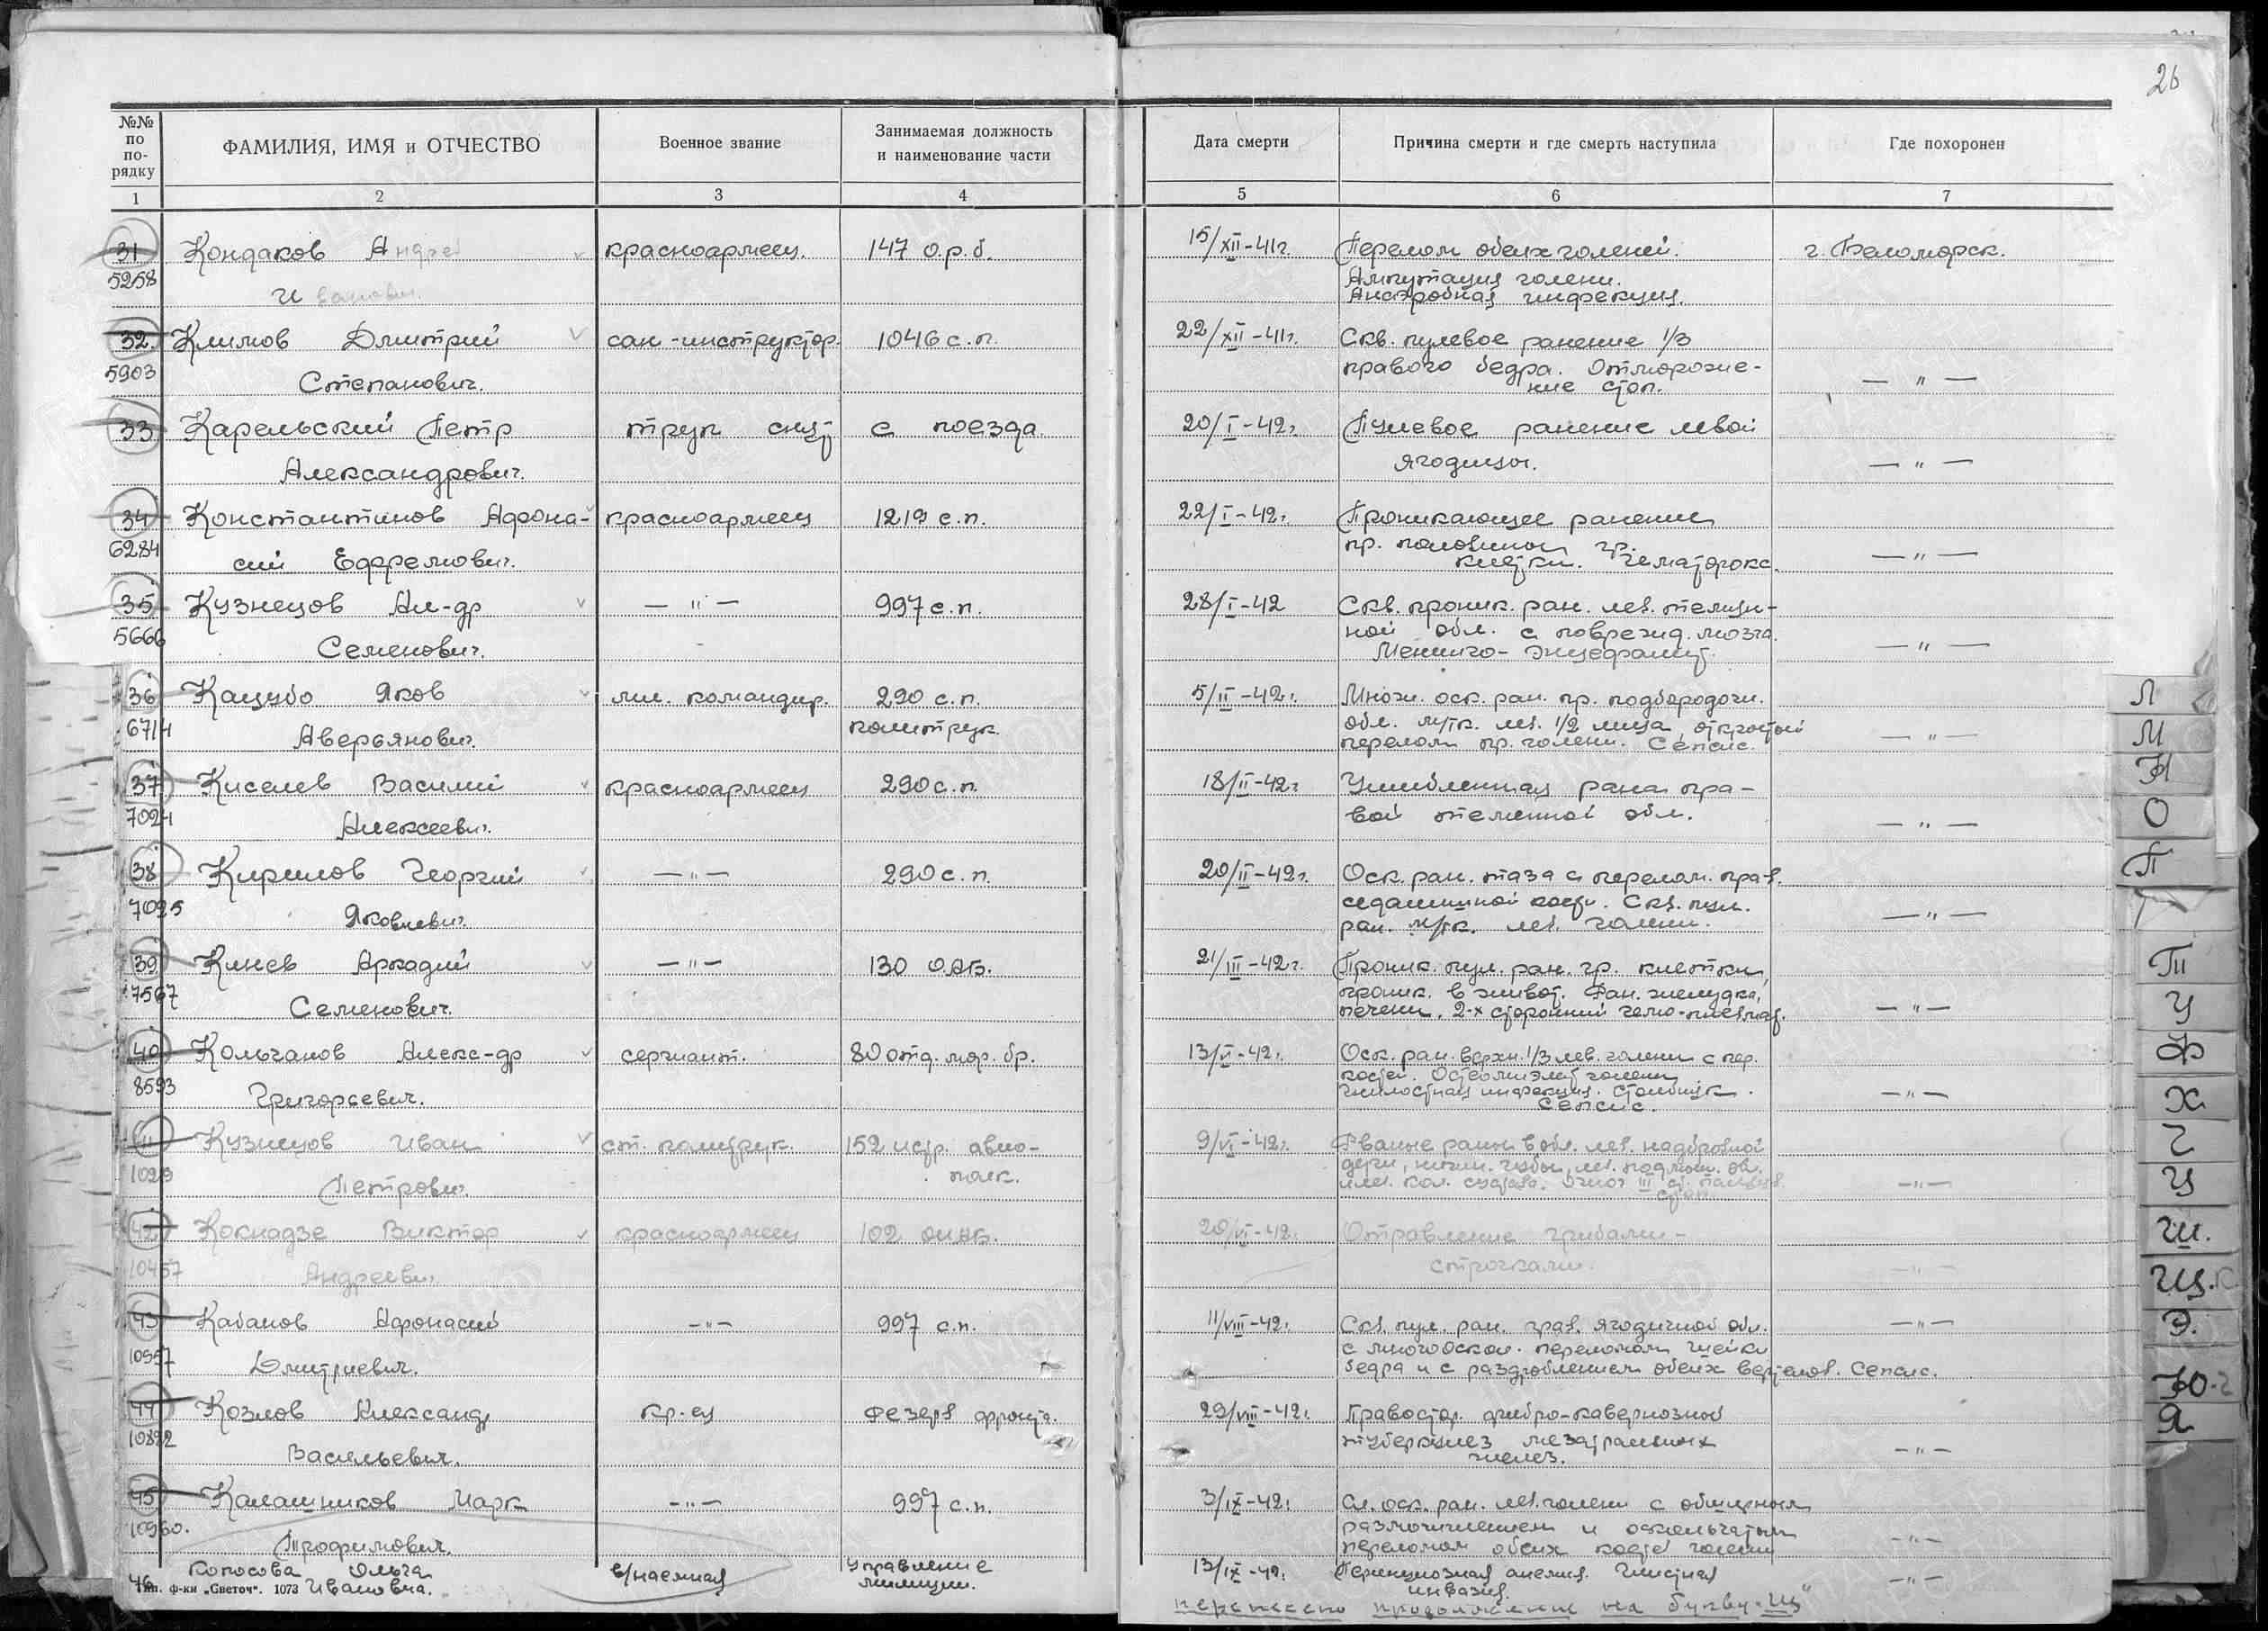 26
№№ по по-рядку
ФАМИЛИЯ, ИМЯ и ОТЧЕСТВО
Военное звание
Занимаемая должность и наименование части
Дата смерти
Причина смерти и где смерть наступила
Где похоронен
1 2 3 4 5 6 7
31 Кондаков Андрей красноармеец. 147 о.р.б. 15/XII-41г. Перелом обеих голеней. г. Беломорск.
5258 Иванович. Ампутация голени.
Анаэробная инфекция.
32. Климов Дмитрий сан-инструктор. 1046 с.п. 22/XII-41г. Скв. пулевое ранение 1/3
5903 Степанович. правого бедра. Отмороже- — " —
ние стоп.
33 Карельский Петр труп снят с поезда. 20/I-42г. Пулевое ранение левой
Александрович. ягодицы. — " —
34 Константинов Афона- красноармеец 1219 с.п. 22/I-42г. Проникающее ранение
6284 сий Ефремович. пр. половины гр. — " —
клетки. Гематоракс.
35 Кузнецов Ал-др — " — 997 с.п. 28/I-42 Скв. проник. ран. лев. темен-
5666 Семенович. ной обл. с поврежд. мозга. — " —
Менинго-энцефалит.
36 Кацубо Яков мл. командир. 290 с.п. 5/II-42г. Множ. оск. ран. пр. подбородочн.
6714 Аверьянович. политрук. обл. м/тк. лев. 1/2 лица, открытый — " —
перелом пр. голени. Сепсис.
37 Киселев Василий красноармеец 290 с.п. 18/II-42г. Ушибленная рана пра-
7024 Алексеевич. вой теменной обл. — " —
38 Кирилов Георгий — " — 290 с.п. 20/II-42г. Оск. ран. таза с перелом. прав.
7025 Яковлевич. седалищной кости. Скв. пул. — " —
ран. м/тк. лев. голени.
39 Кинев Аркадий — " — 130 ОАБ. 21/III-42г. Проник. пул. ран. гр. клетки,
7567 Семенович. проник. в живот. Ран. желудка, — " —
печени. 2-х сторонний гемо-пневмат.
40 Кольчанов Алекс-др сержант. 80 отд. мор. бр. 13/V-42г. Оск. ран. верхн. 1/3 лев. голени с пер.
8593 Григорьевич. костей. Остеомиэлит голени — " —
гнилостная инфекция. столбняк.
Сепсис.
41 Кузнецов Иван ст. политрук. 152 истр. авио- 9/VI-42г. Рваные раны в обл. лев. надбровной
10219 Петрович. полк. дуги, нижн. губы, лев.
и лев. кол. сустава. Ожог III ст. пальцев — " —
стоп.
42 Кокнадзе Виктор красноармеец 102 20/VI-42г. Отравление грибами-
10457 Андреевич. строчками. — " —
43 Кабанов Афонасий — " — 997 с.п. 11/VIII-42г. Скв. пул. ран. прав. ягодичной обл. — " —
10957 Дмитриевич. с многооскол. переломом шейки
бедра и с раздроблением обеих вертелов. Сепсис.
44 Козлов Александр кр-ец Резерв фронта. 29/VIII-42г. Правостор. фибро-кавернозный
10822 Васильевич. туберкулез мезатральных — " —
желез.
45 Калашников Марк — " — 997 с.п. 3/IX-42г. Сл. оск. ран. лев. голени с обширным
10960. Трофимович. размозжением и оскольчатым — " —
переломом обеих костей голени
46 Копосова Ольга в/наемная Управление 13/IX-42г. Пернициозная анемия. Глистная — " —
Ивановна. милиции. инвазия.
Тип. ф-ки „Светоч". 1073
перенесено продолжение на букву „Щ"
Л
М
Н
О
П
Т
У
Ф
Х
Ч
Ц
Ш.
Щ.К
Э.
Ю-2
Я